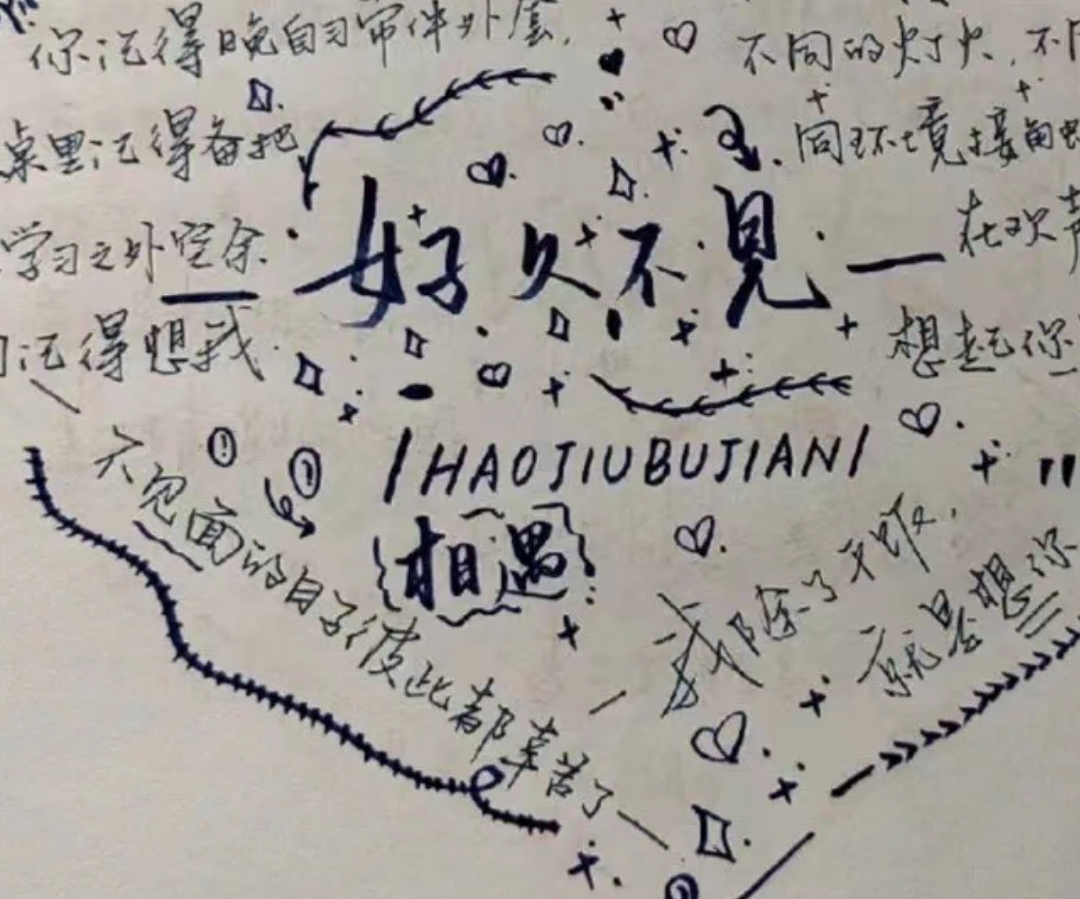 你记得晚自习带件外套,
桌里记得备把
学习之外空余
记得想我
好久不见
不同的灯火,不同
同环境接
在欢声
想起你
/HAOJIUBUJIAN/
相遇
不见面的日子彼此都辛苦了
我除了乖,
就是想你